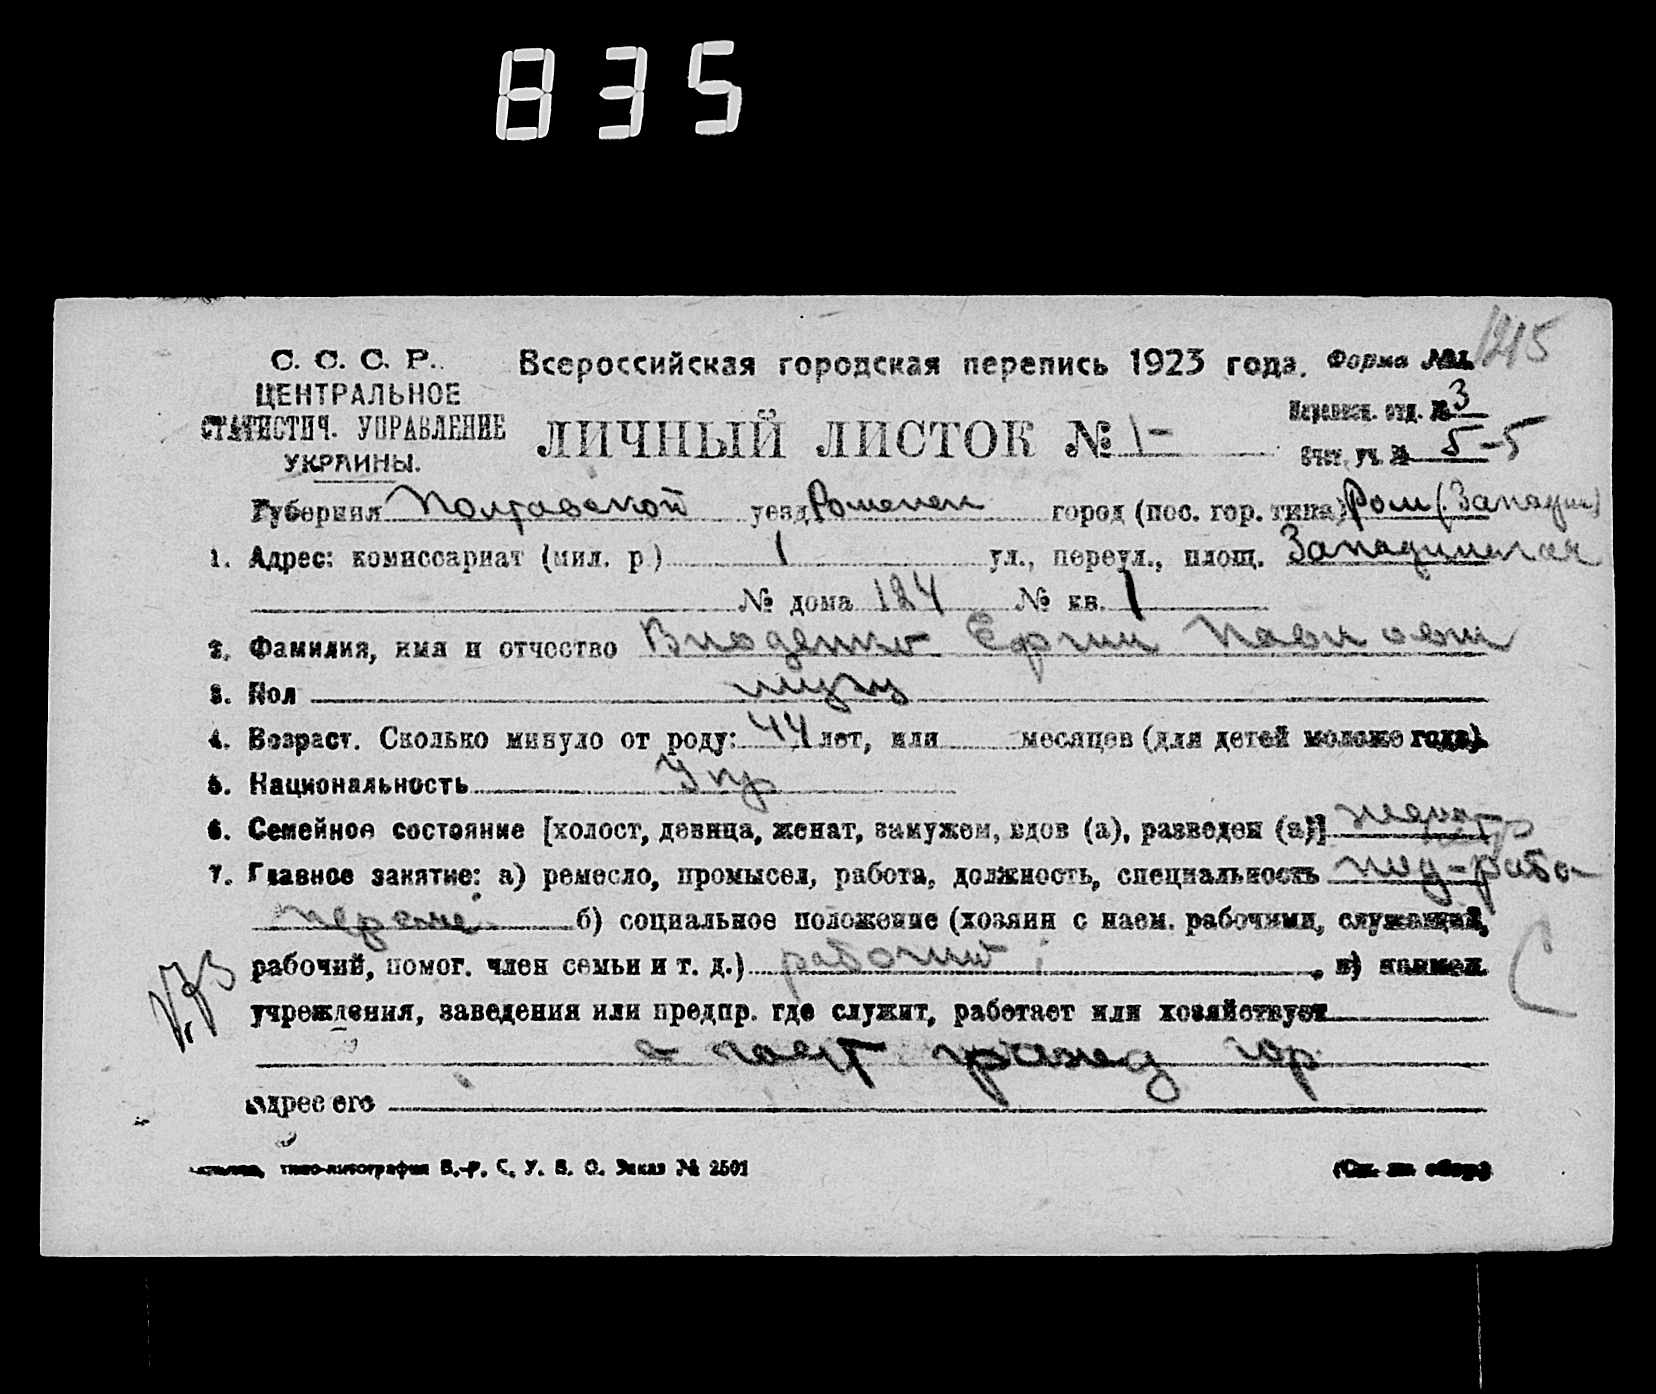 835
1215
С. С. С. Р.
ЦЕНТРАЛЬНОЕ
СТАТИСТИЧ. УПРАВЛЕНИЕ
УКРАИНЫ.
Всероссийская городская перепись 1923 года. Форма №1.
ЛИЧНЫЙ ЛИСТОК № 1-
Переписн. отд. № 3
Счет. уч. № 5-5
Губерния Полтавской уезд Роменск город (пос. гор. типа) Ром (
1. Адрес: комиссариат (мил. р.) 1 ул., переул., площ. Западинская
№ дома 124 № кв. 1
2. Фамилия, имя и отчество Ефим Павлович
3. Пол мужч
4. Возраст. Сколько минуло от роду: 44 лет, или месяцев (для детей моложе года).
5. Национальность Укр
6. Семейное состояние [холост, девица, женат, замужем, вдов (а), разведен (а)] женат
7. Главное занятие: а) ремесло, промысел, работа, должность, специальность
б) социальное положение (хозяин с наем. рабочими, служащий,
рабочий, помог. член семьи и т. д.) рабочий , в) наимен.
учреждения, заведения или предпр. где служит, работает или хозяйствует
адрес его
типо-литография В.-Р. С. У. В. О. Заказ № 2501
(См. на обор.)